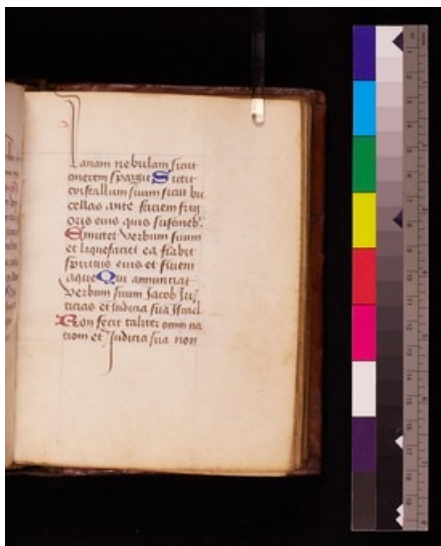 Lanam nebulam sicut
cinerem spargit Sictit
cristallum suum sicut bu
cellas ante faciem frig
oris eius quis sustineb.
Emittet verbum suum
et liquefaciet ea flabit
spiritus eius et fluent
aque Qui annuntiat
verbum suum Jacob Jus
ticias et iudicia sua Israel
Non fecit taliter omni na
tioni et Judicia sua non